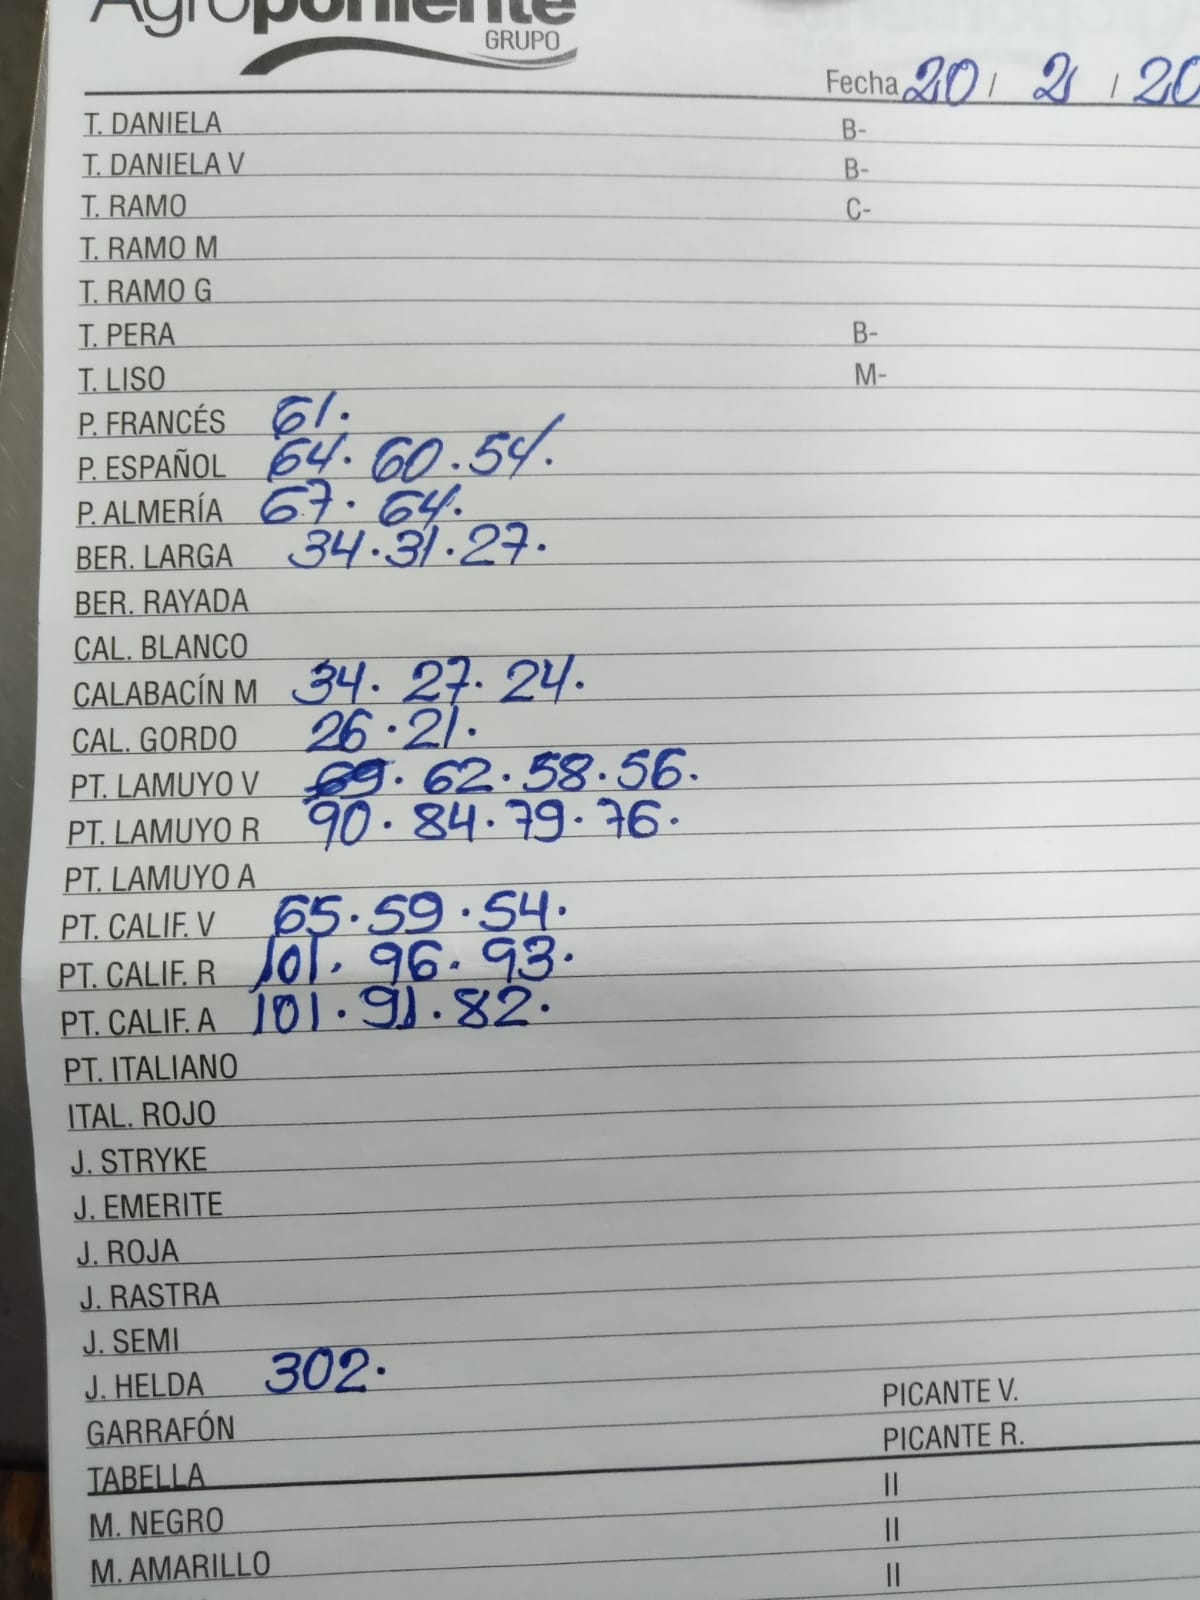 Agroponiente
GRUPO
Fecha 20 / 2 / 20
T. DANIELA B-
T. DANIELA V B-
T. RAMO C-
T. RAMO M
T. RAMO G
T. PERA B-
T. LISO M-
P. FRANCÉS 61.
P. ESPAÑOL 64. 60. 54.
P. ALMERÍA 67. 64.
BER. LARGA 34. 31. 27.
BER. RAYADA
CAL. BLANCO
CALABACÍN M 34. 27. 24.
CAL. GORDO 26. 21.
PT. LAMUYO V 69. 62. 58. 56.
PT. LAMUYO R 90. 84. 79. 76.
PT. LAMUYO A
PT. CALIF. V 65. 59. 54.
PT. CALIF. R 101. 96. 93.
PT. CALIF. A 101. 91. 82.
PT. ITALIANO
ITAL. ROJO
J. STRYKE
J. EMERITE
J. ROJA
J. RASTRA
J. SEMI
J. HELDA 302.
GARRAFÓN PICANTE V.
TABELLA PICANTE R.
M. NEGRO II
M. AMARILLO II
II